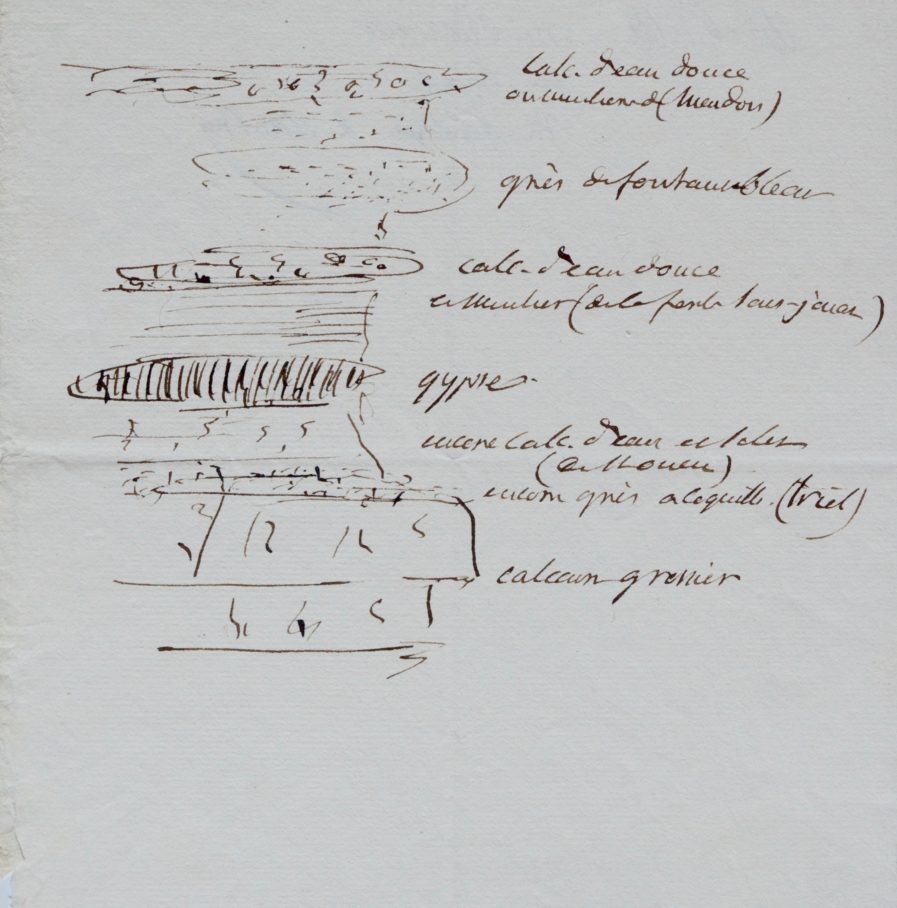 calc. d'eau douce
ou meulieres (Meudon)
grès de fontainebleau
calc. d'eau douce
et Meulier (de la ferté sous-jouar)
gypse
encore calc. d'eau
(de St ouen)
encore grès a coquille. (triel)
calcaire grossier